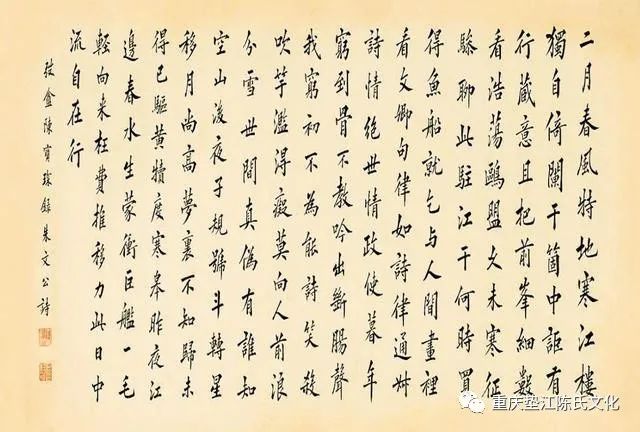 二月春風特地寒江樓
獨自倚闌干箇中詎有
行藏意且把前峯細數
看浩蕩鷗盟久未寒征
驂聊此駐江干何時買
得魚船就乞与人間畫裡
看文卿句律如詩律通叔
詩情絕世情政使暮年
窮到骨不教吟出斷腸聲
我窮初不為能詩笑殺
吹竽濫得癡莫向人前浪
分雪世間真偽有誰知
空山後夜子規號斗轉星
移月尚高夢裏不知歸未
得已驅黃犢度寒皋昨夜江
邊春水生蒙衝巨艦一毛
輕向来枉費推移力此日中
流自在行
弢盦陳寶琛錄朱文公詩
重庆垫江陈氏文化